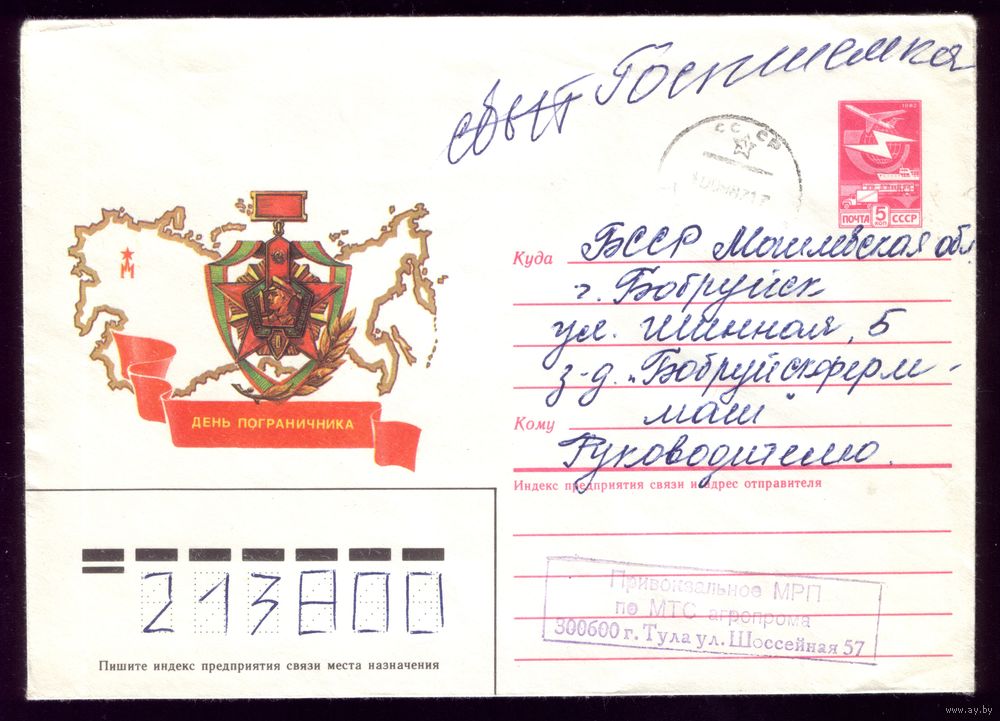 сбыт Госпиемка
1982
ПОЧТА 5 КОП СССР
СССР
Куда БССР Могилевская обл
г. Бобруйск
ул. Шинная, 5
з-д. „Бобруйскферм-
Кому маш"
Руководителю.
Индекс предприятия связи и адрес отправителя
ДЕНЬ ПОГРАНИЧНИКА
213800
Пишите индекс предприятия связи места назначения
Привокзальное МРП
по МТС агропрома
300600 г. Тула ул. Шоссейная 57
www.ay.by